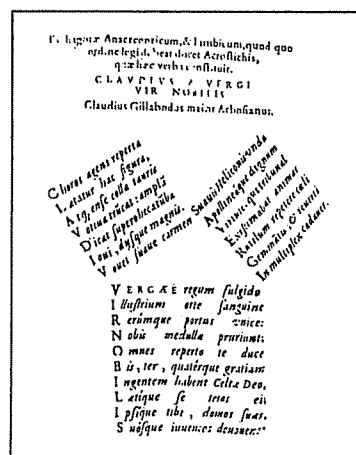 Anacreonticum, & Iambicum, quod quo
ordine legi debeat docet Acrostichis,
quæ hæc verba constituit.
CLAVDIVS A VERGI
VIR NOBILIS
Claudius Gillabodas maior Arbosianus.
Choros agens reperta
hac figura,
Atq; ense colla tauris
Votiua amplā
Dicat
Ioui, magnis.
Vouet suaue carmen
Suauis Heliconis vnda
Apollineque dignum
Existimabat animus
repetere cæli
Gemmata, & reuerti
In multiplex cadauer.
VERGÆE regum fulgido
Illustrium orte sanguine
Rerúmque portus vnice:
Nobis medullæ pruriunt:
Omnes reperto te duce
Bis, ter, quatérque gratiam
Ingentem habent Celtæ Deo,
Lætique se totos eij
Ipsíque tibi, domos suas,
Suósque iuuenes deuouent.